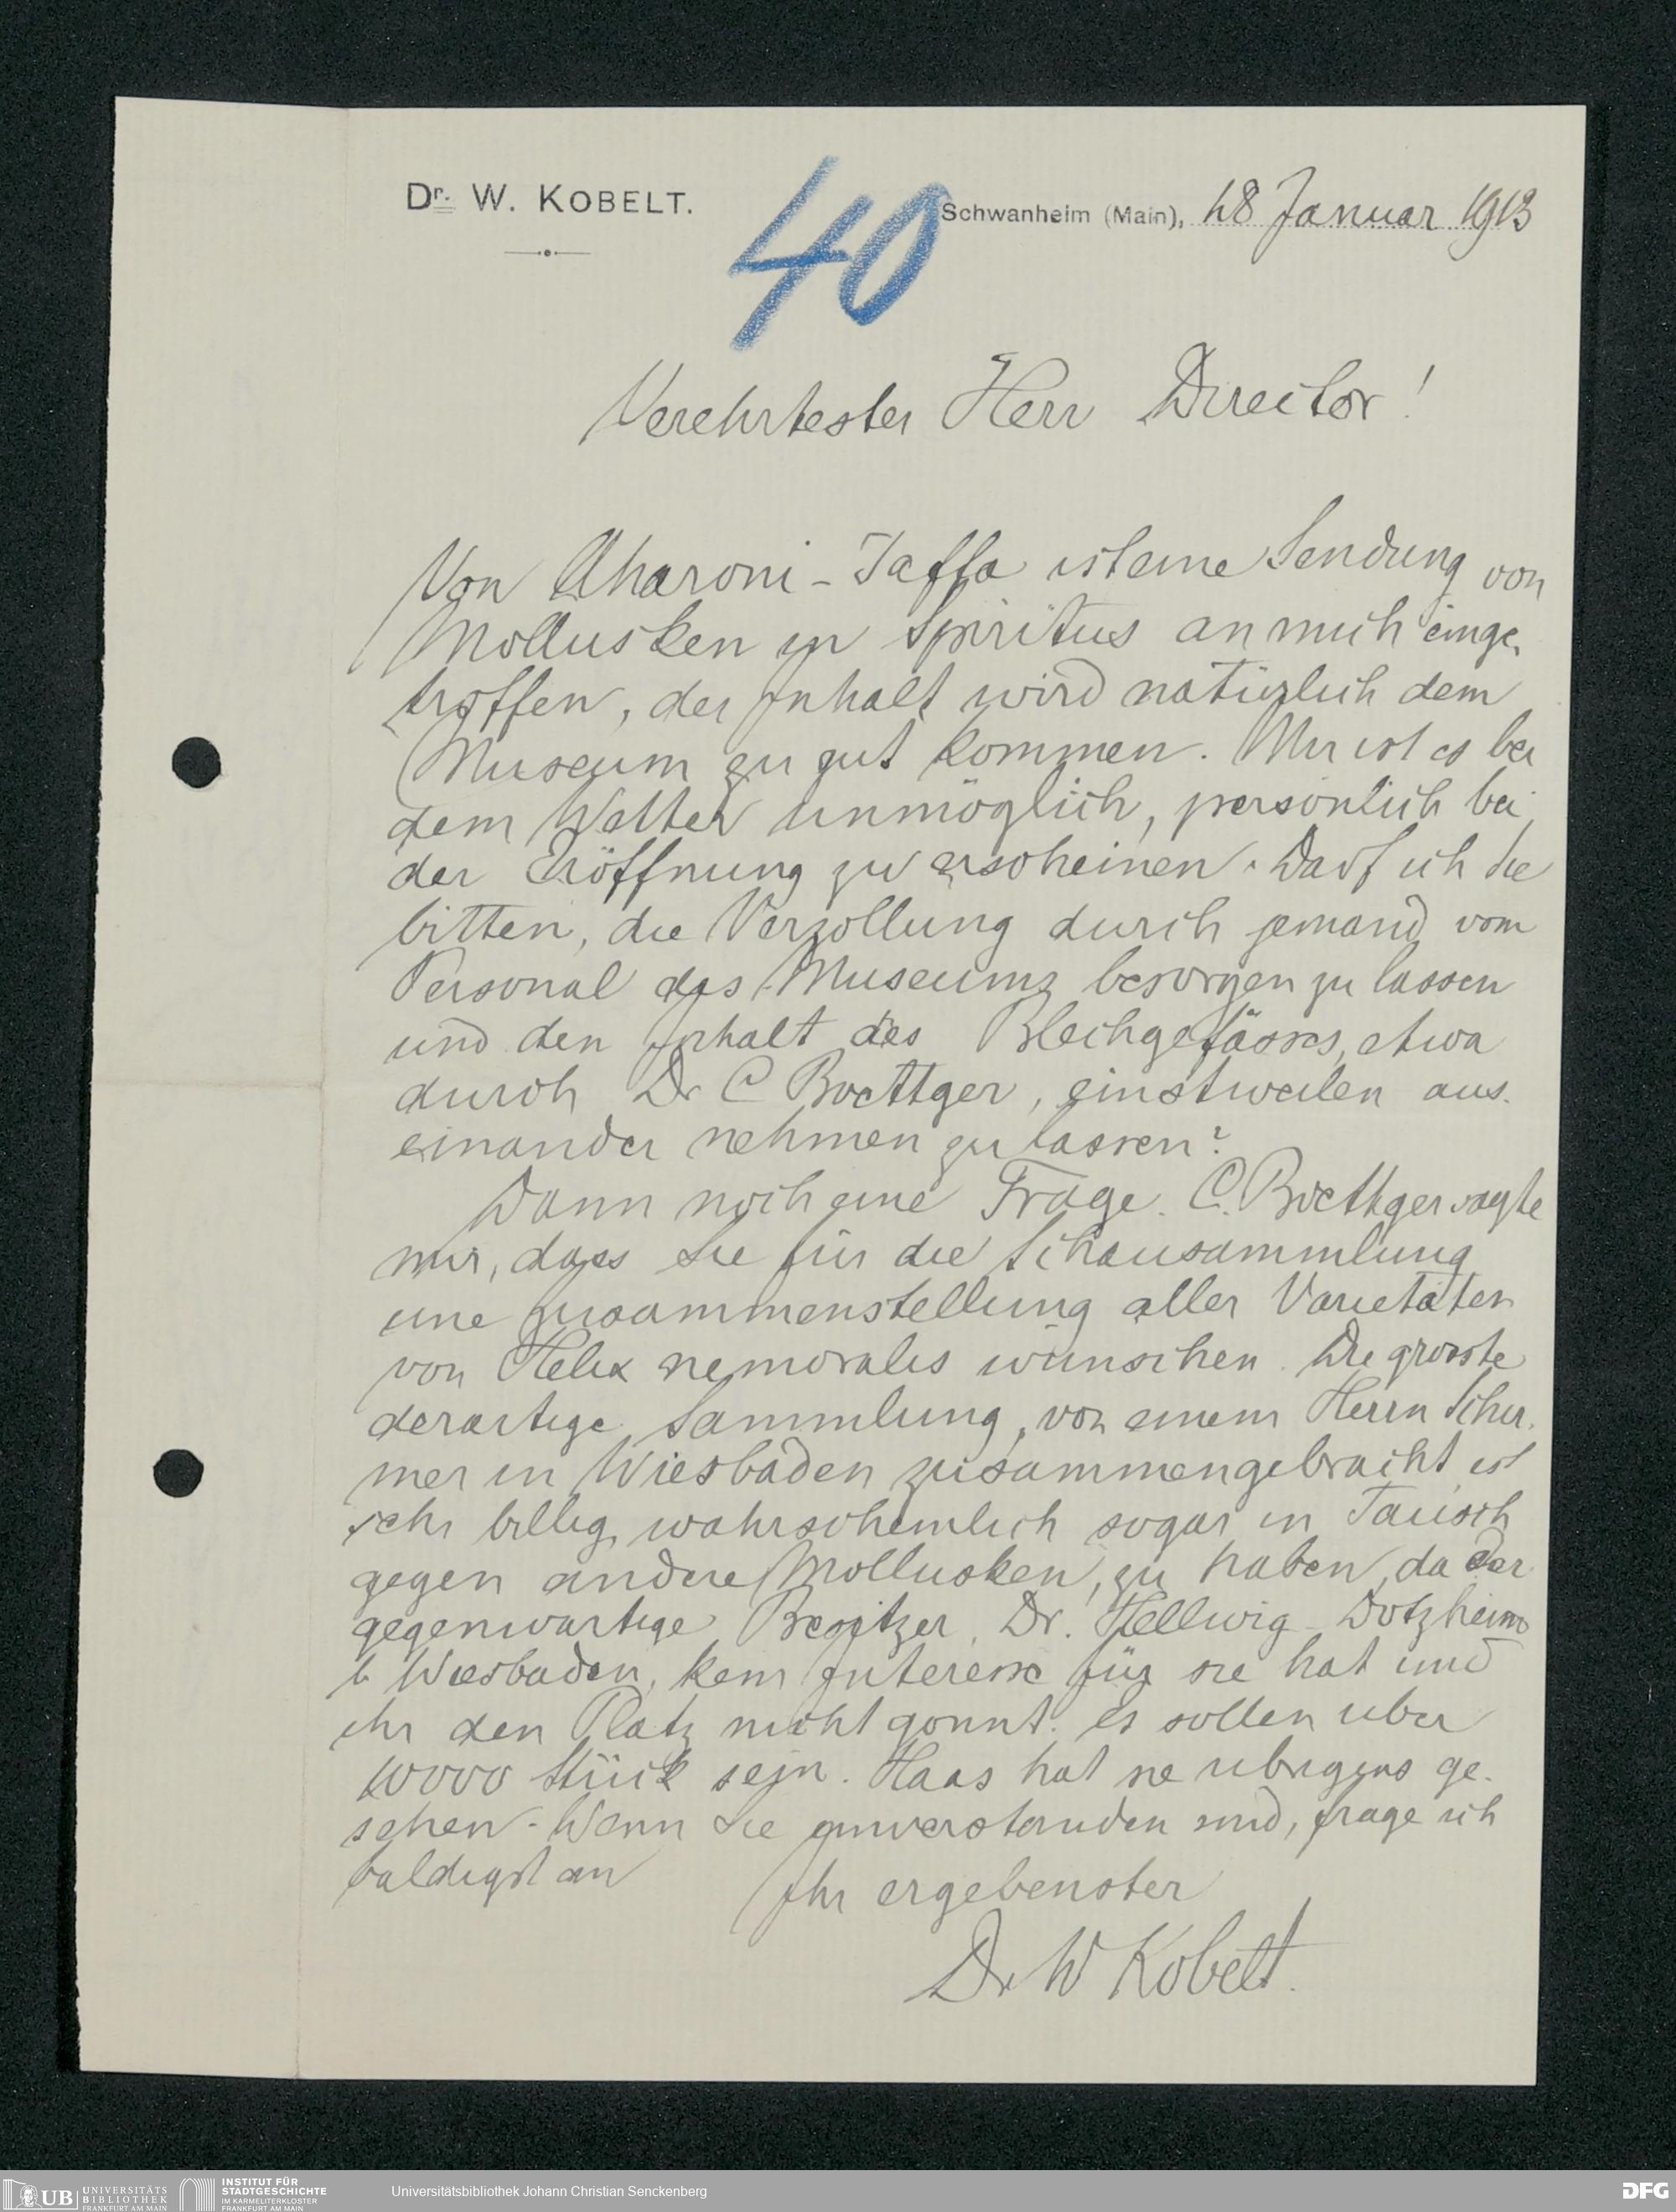 Dr. W. KOBELT.
40
Schwanheim (Main), 18 Januar 1913
Verehrtester Herr Director!
Von Aharoni - Jaffa ist eine Sendung von
Mollusken in Spiritus an mich einge-
troffen, der Inhalt wird natürlich dem
Museum zu gut kommen. Mir ist es bei
dem Wetter unmöglich, persönlich bei
der Eröffnung zu erscheinen. Darf ich Sie
bitten, die Verzollung durch jemand vom
Personal des Museums besorgen zu lassen
und den Inhalt des Blechgefässes, etwa
durch Dr C Boettger, einstweilen aus-
einander nehmen zu lassen?
Dann noch eine Frage. C. Boettger sagte
mir, dass Sie für die Schausammlung
eine Zusammenstellung aller Varietäten
von Helix nemoralis wünschen. Die grosste
derartige Sammlung, von einem Herrn Schir-
mer in Wiesbaden zusammengebracht, ist
sehr billig, wahrscheinlich sogar in Tausch
gegen andere Mollusken, zu haben, da der
gegenwartige Besitzer, Dr. Hellwig - Dotzheim
b Wiesbaden, kein Interesse für sie hat und
ihr den Platz nicht gonnt. Es sollen uber
10000 Stück sein. Haas hat sie ubrigens ge-
sehen. Wenn Sie einverstanden sind, frage ich
baldigst an
Ihr ergebenster
Dr W Kobelt.
UB UNIVERSITÄTS
BIBLIOTHEK
FRANKFURT AM MAIN
INSTITUT FÜR
STADTGESCHICHTE
IM KARMELITERKLOSTER
FRANKFURT AM MAIN
Universitätsbibliothek Johann Christian Senckenberg
DFG